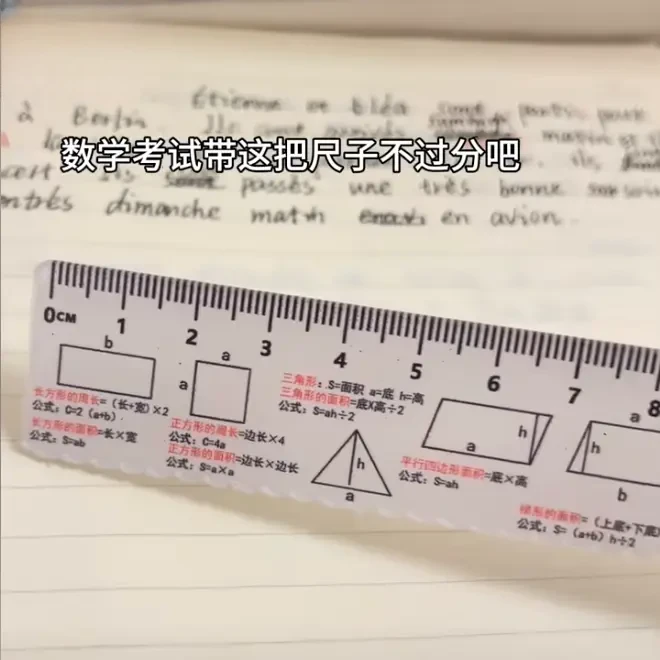 Etienne et Cléa
à Berlin
数学考试带这把尺子不过分吧
passés une très bonne
dimanche matin en avion.
0CM 1 2 3 4 5 6 7 8
b
长方形的周长=（长+宽）×2
公式：C=2（a+b）.
长方形的面积=长×宽
公式：S=ab
a
a
正方形的周长=边长×4
公式：C=4a
正方形的面积=边长×边长
公式：S=a×a
三角形：S=面积 a=底 h=高
三角形的面积=底×高÷2
公式：S=ah÷2
h
a
h
a
平行四边形面积=底×高
公式：S=ah
a
h
b
梯形的面积=（上底+下底
公式：S=（a+b）h÷2